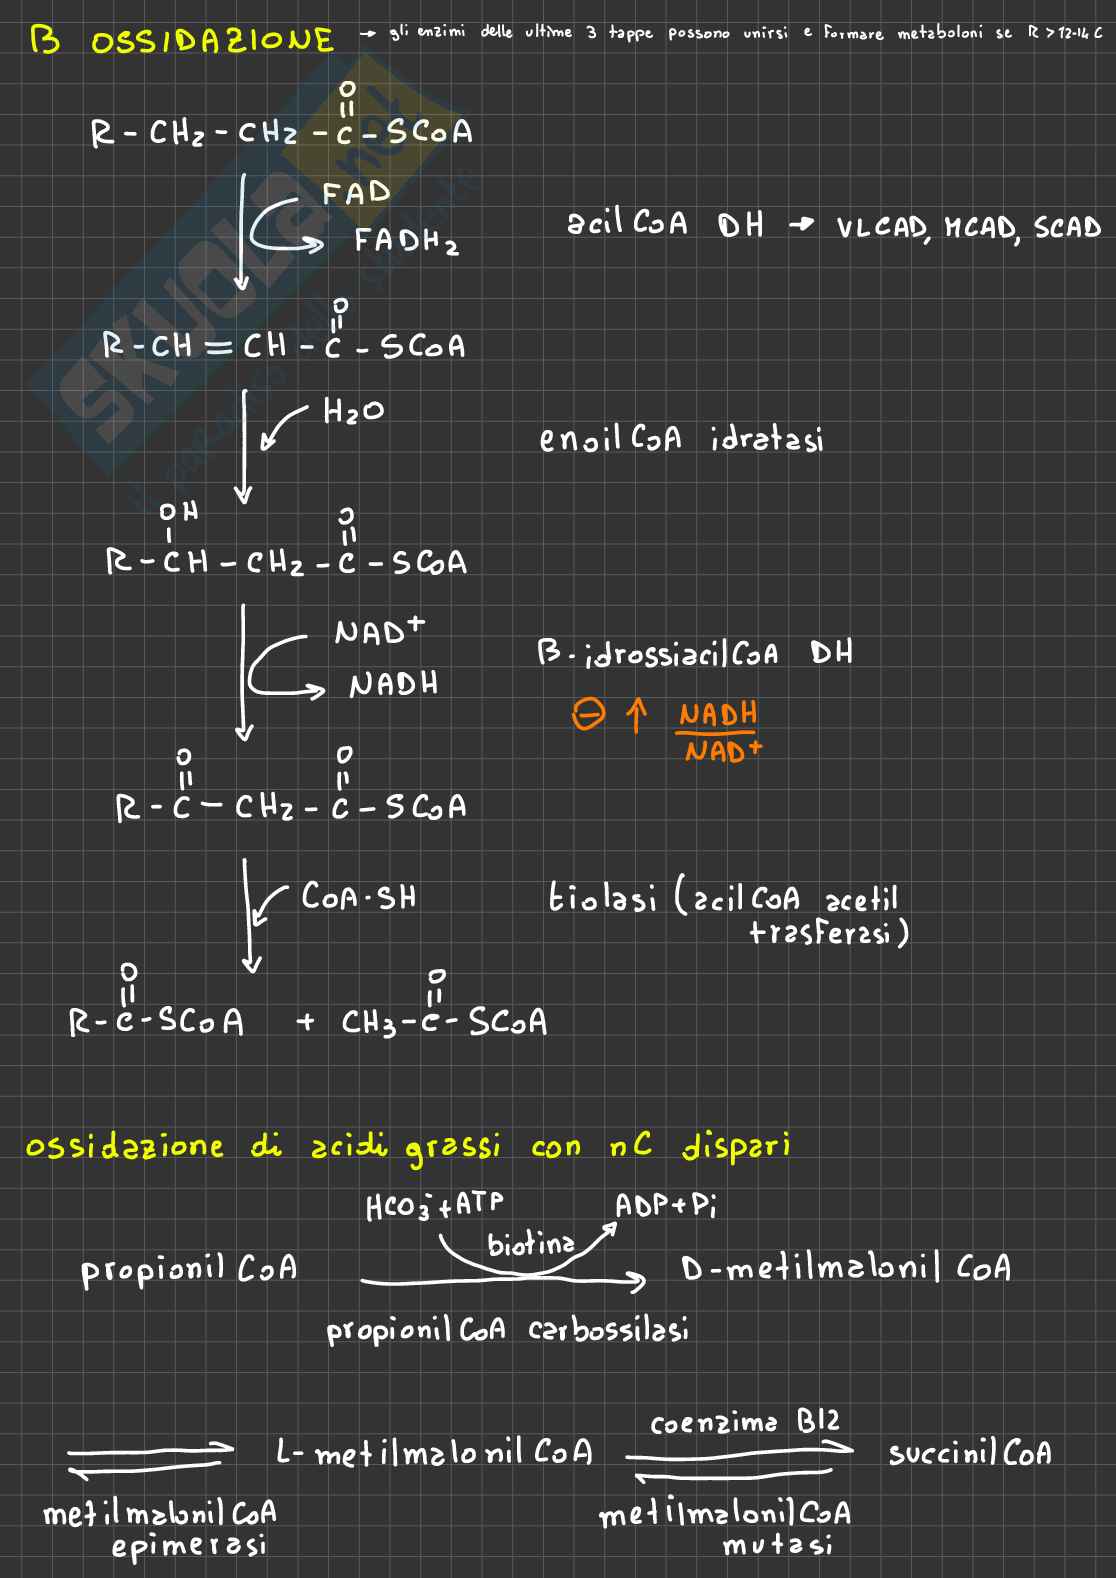 B OSSIDAZIONE → gli enzimi delle ultime 3 tappe possono unirsi e formare metaboloni se R > 12-14 C
O
R - CH2 - CH2 - C - SCoA
FAD
FADH2
acil CoA DH → VLCAD, MCAD, SCAD
O
R - CH = CH - C - SCoA
H2O
enoil CoA idratasi
OH O
R - CH - CH2 - C - SCoA
NAD+
NADH
B-idrossiacil CoA DH
⊖ ↑ NADH
NAD+
O O
R - C - CH2 - C - SCoA
CoA-SH
tiolasi (acil CoA acetil
trasferasi)
O O
R - C - SCoA + CH3 - C - SCoA
ossidazione di acidi grassi con nC dispari
HCO3- + ATP ADP + Pi
biotina
propionil CoA D-metilmalonil CoA
propionil CoA carbossilasi
coenzima B12
L-metilmalonil CoA succinil CoA
metilmalonil CoA metilmalonil CoA
epimerasi mutasi
SKUOLA.net